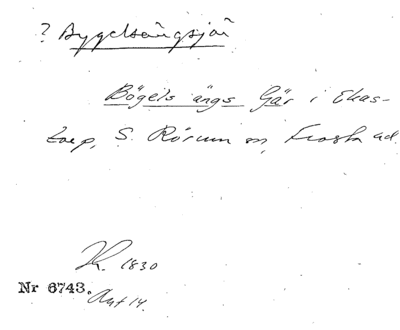 ? Bygelsängsjär
Bögels ängs Gär i Ekas-
torp, S. Rörum sn, Frosta hd.
K. 1830
Nr 6743. Aut 14.